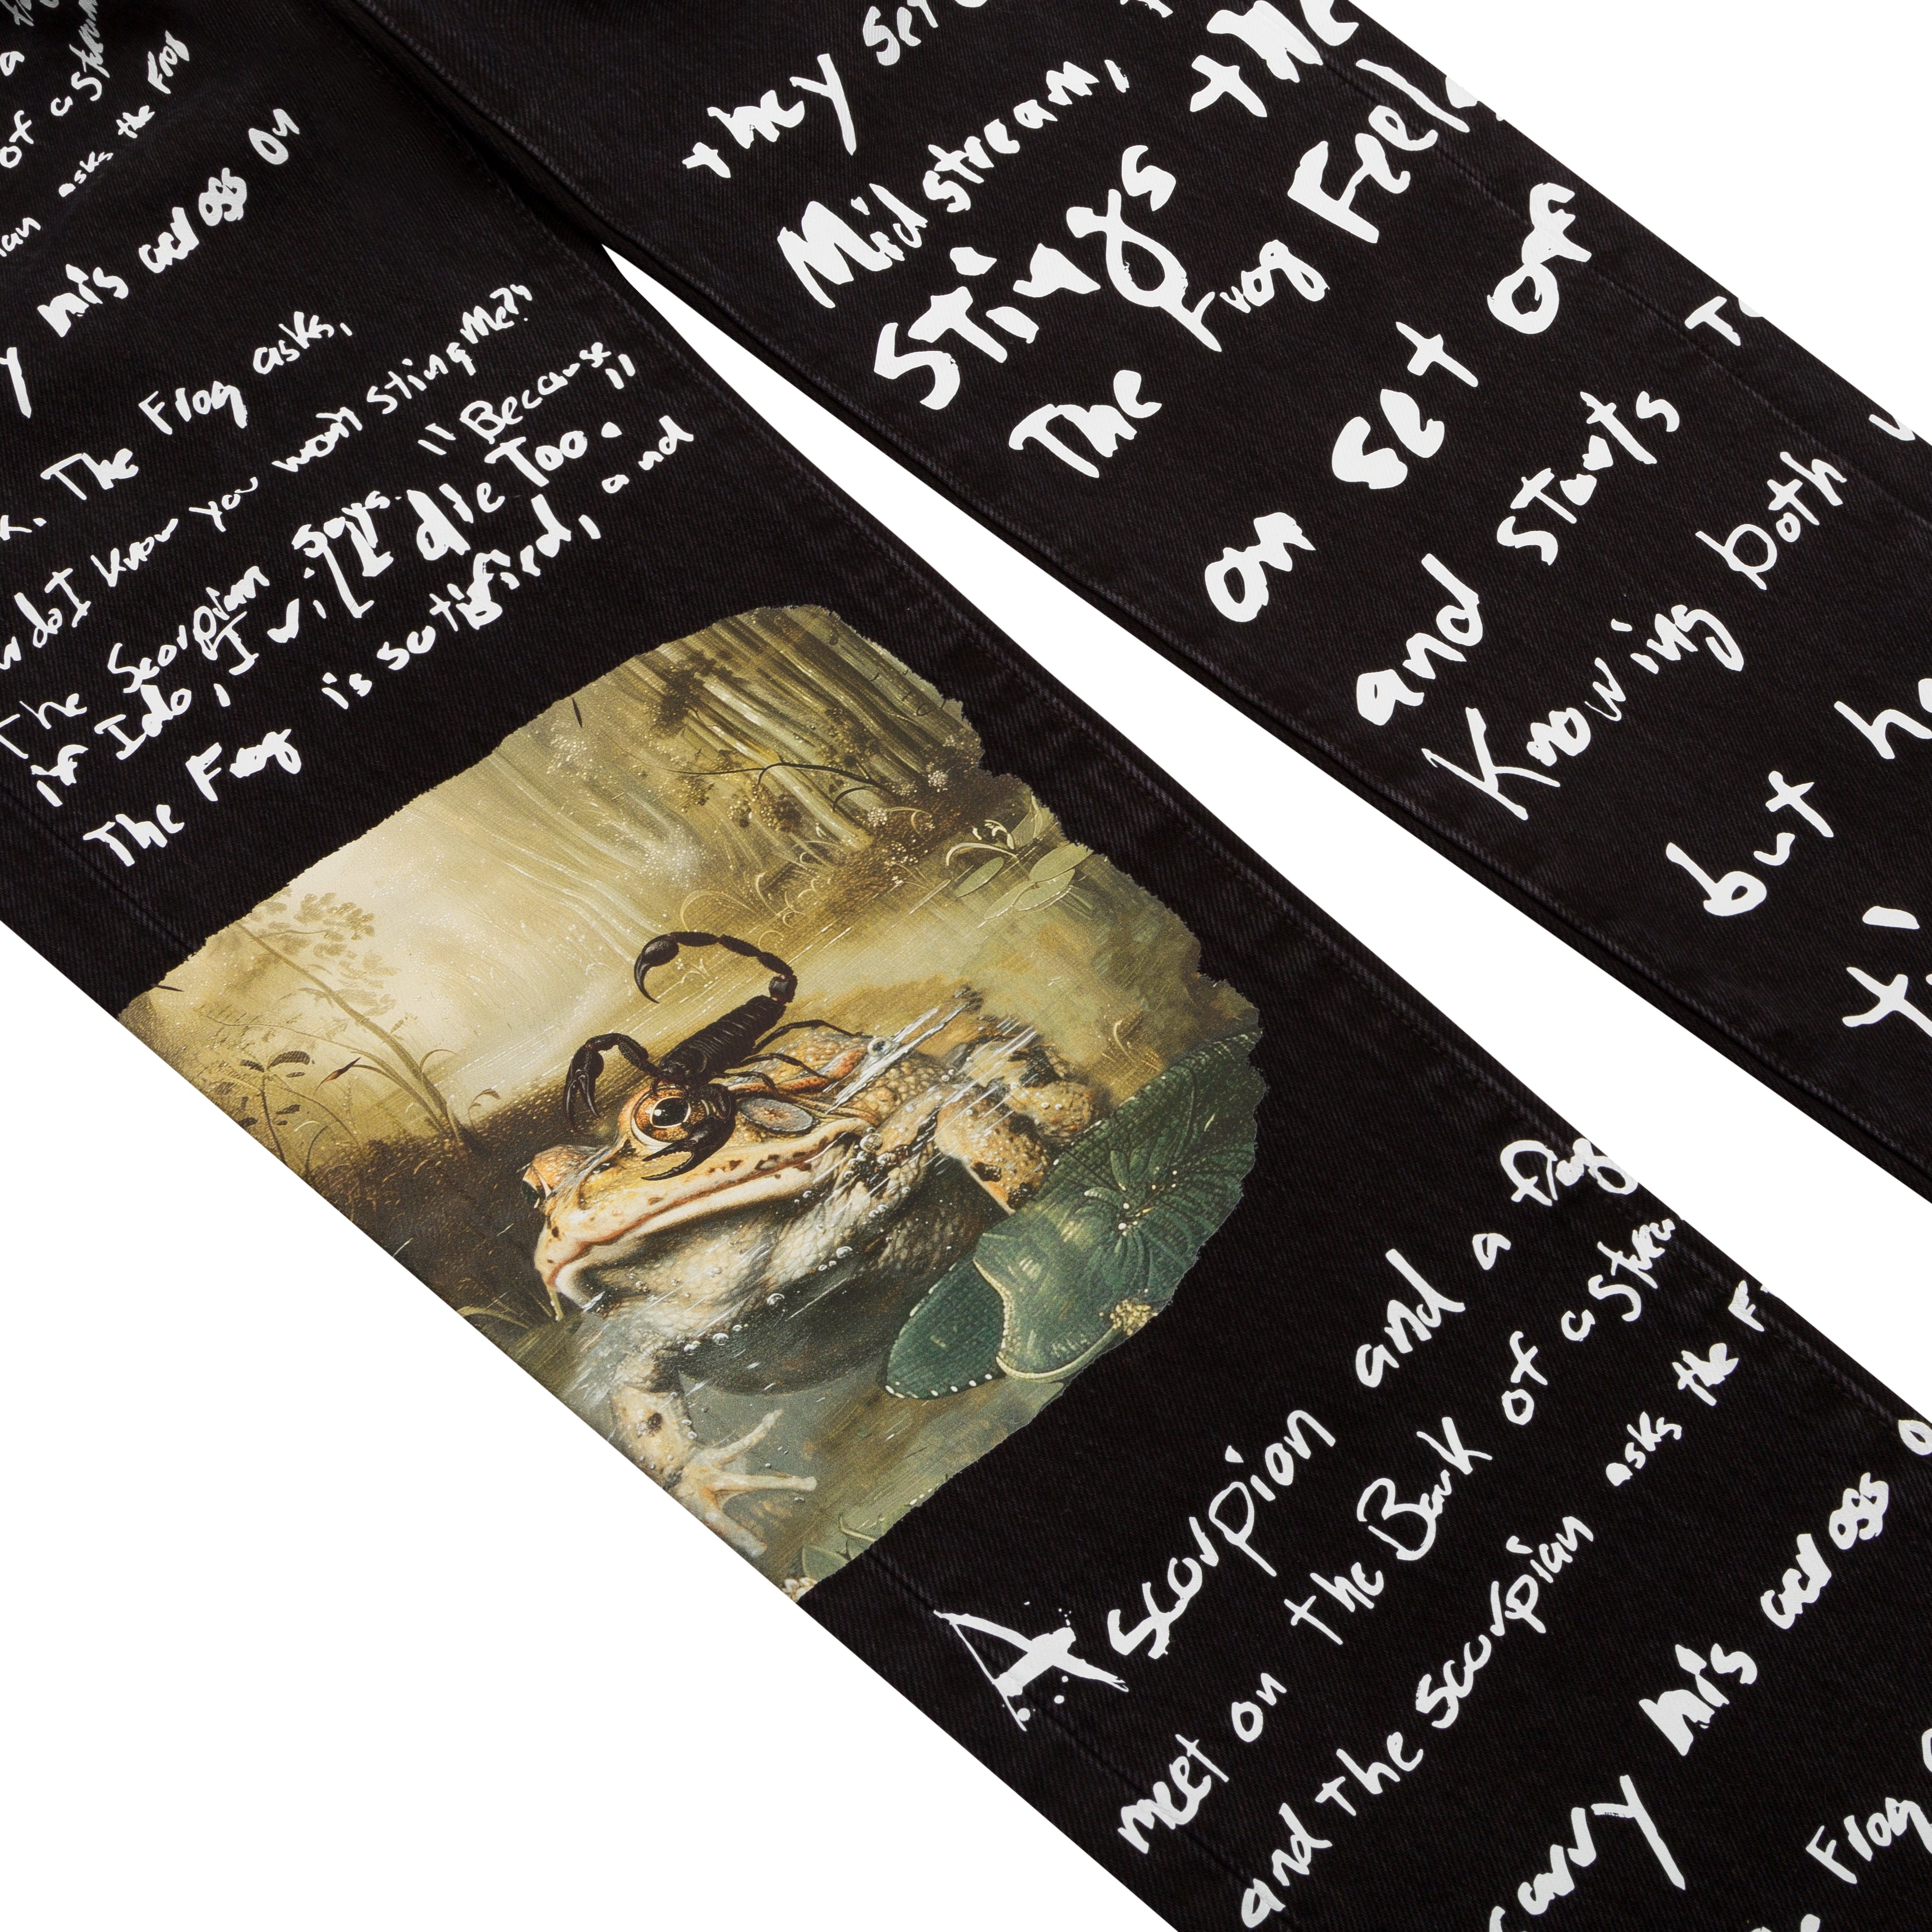 a
of a Stream
asks the Frog
y his across on
k. The Frog asks,
do I Know you won't sting Me?"
The Scorpian says. "Because
if I do, I will die Too."
The Frog is satisfied, and
they set
Mid stream,
Stings the
The Frog Feels
on set of
and starts to
Knowing both
but he
A Scorpion and a Frog
meet on the Bank of a Stream
and the Scorpian asks the F
carry his across o
Frog